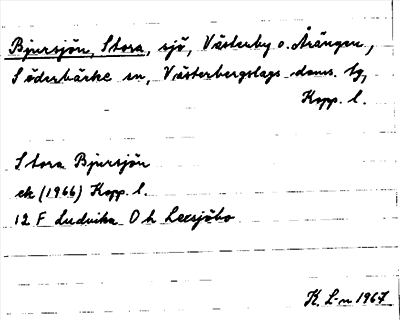 Bjursjön, Stora, sjö, Västerby o. Årängen,
Söderbärke sn, Västerbergslags doms. tg,
Kopp. l.
Stora Bjursjön
ek (1966) Kopp. l.
12 F Ludvika O h Leesjöbo
K. L-n 1967